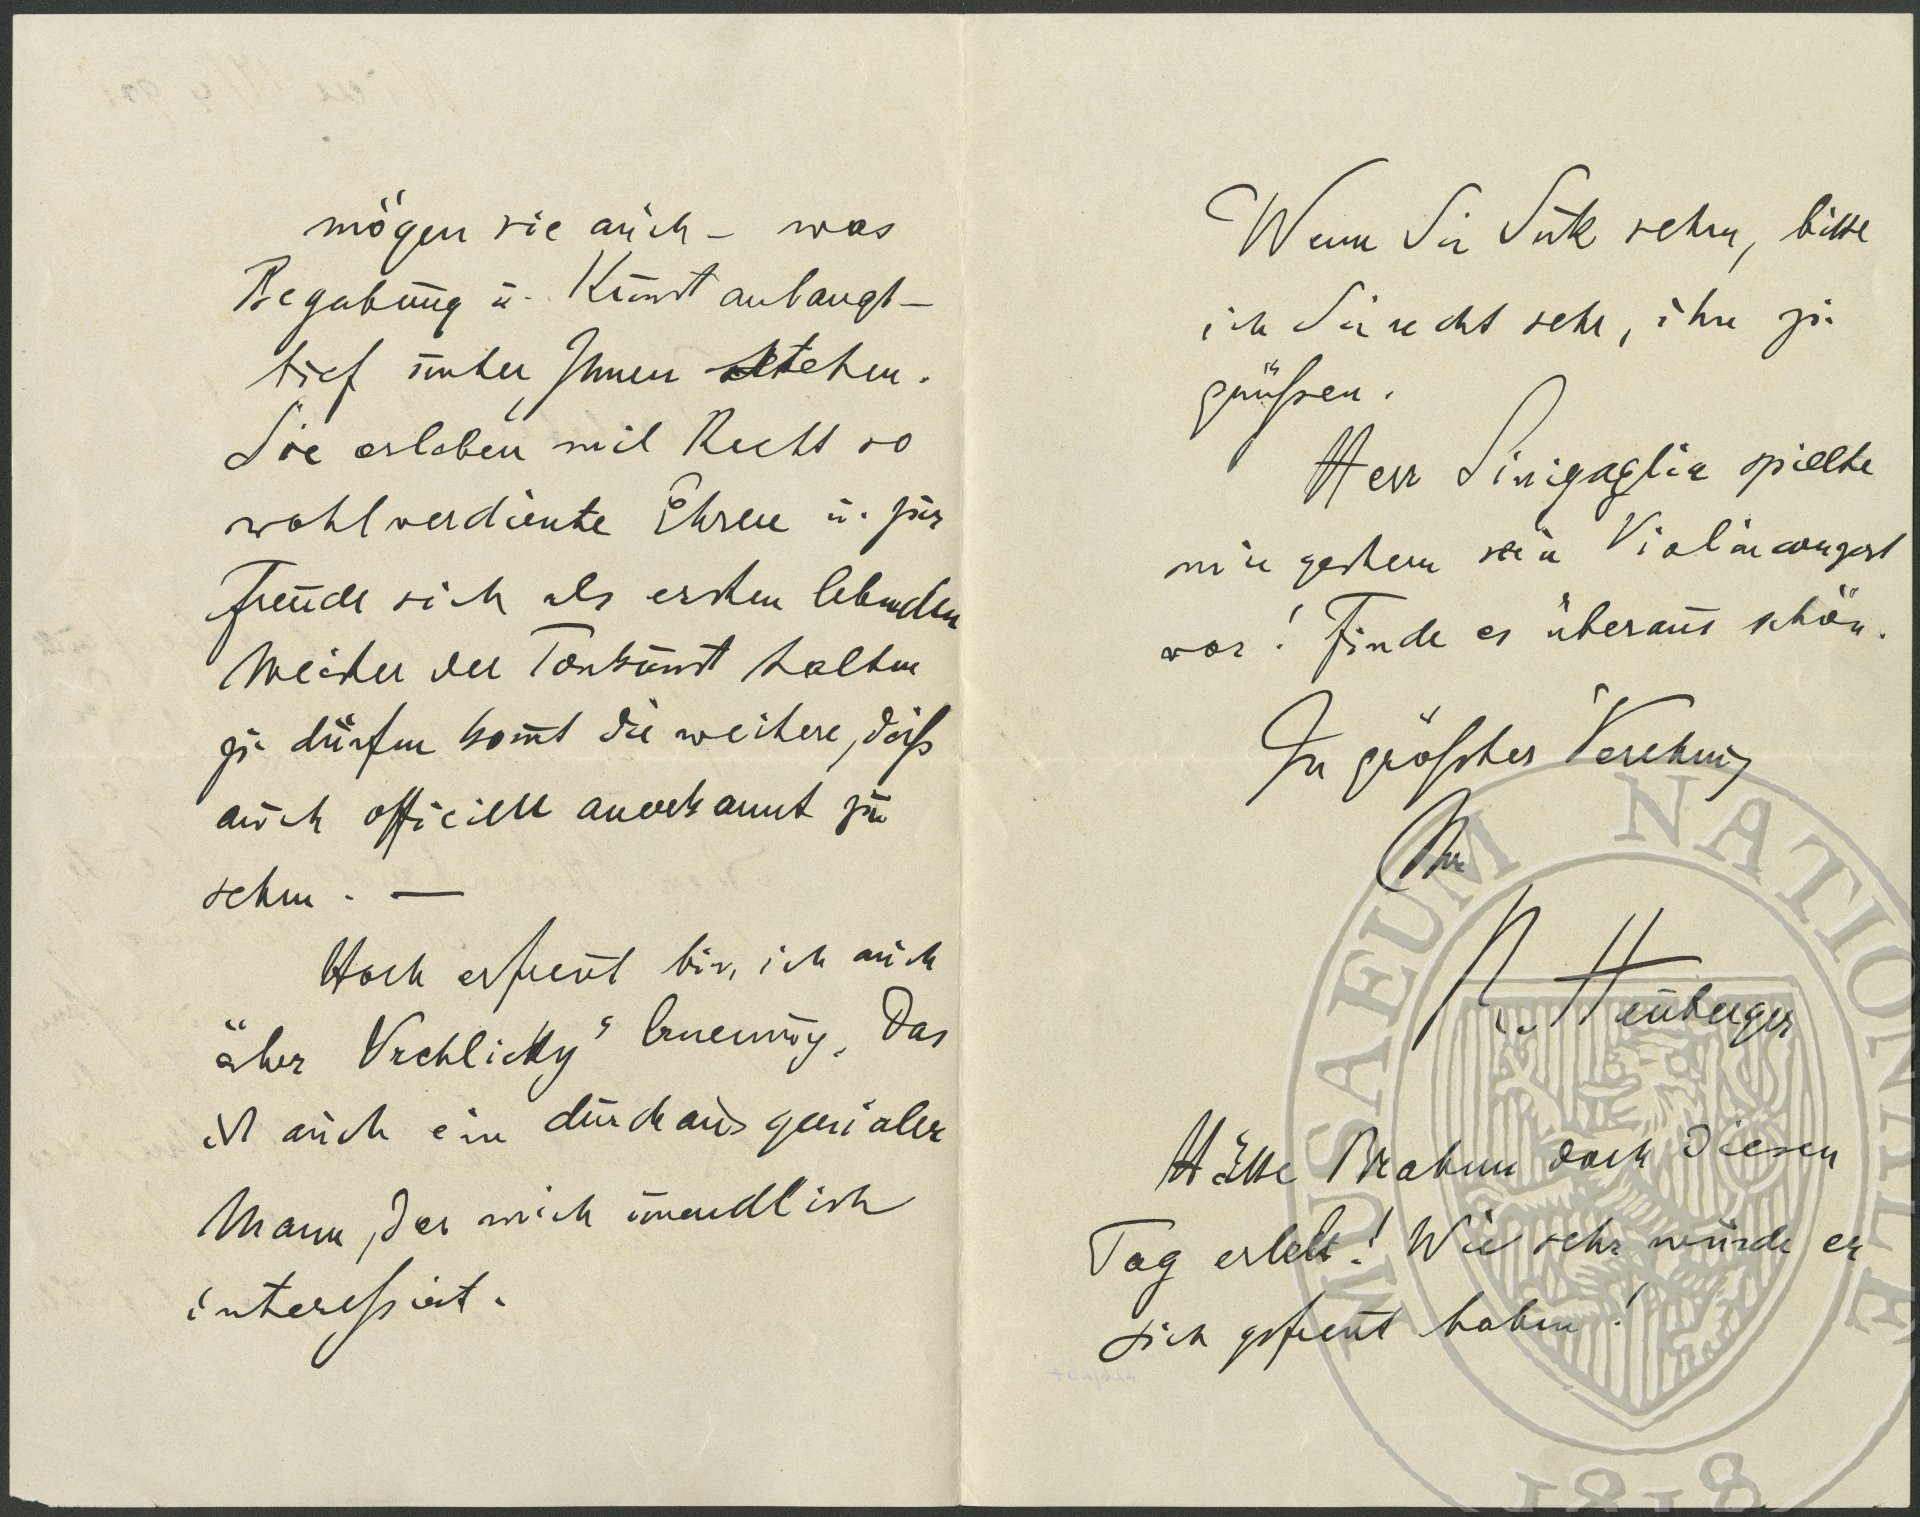 mögen sie auch – was
Begabung u. Kunst anlangt –
tief unter Ihnen stehen.
Sie erleben mit Recht so
wohlverdiente Ehren u. zur
Freude sich als ersten lebenden
Meister der Tonkunst halten
zu dürfen kom̅t die weitere, dass
auch officiell anerkannt zu
sehen. —
Hoch erfreut bin ich auch
über Vrchlicky's Ernennung. Das
ist auch ein durchaus genialer
Mann, der mich unendlich
interessirt.
Wenn Sie Suk sehen, bitte
ich Sie recht sehr, ihn zu
grüßen.
Herr Sinigaglia spielte
mir gestern sein Violinconzert
vor! Finde es überaus schön.
In größter Verehrung
Ihr
R. Heuberger
Hätte Brahms doch diesen
Tag erlebt! Wie sehr würde er
sich gefreut haben!
MUSAEUM NATIONALE
1818